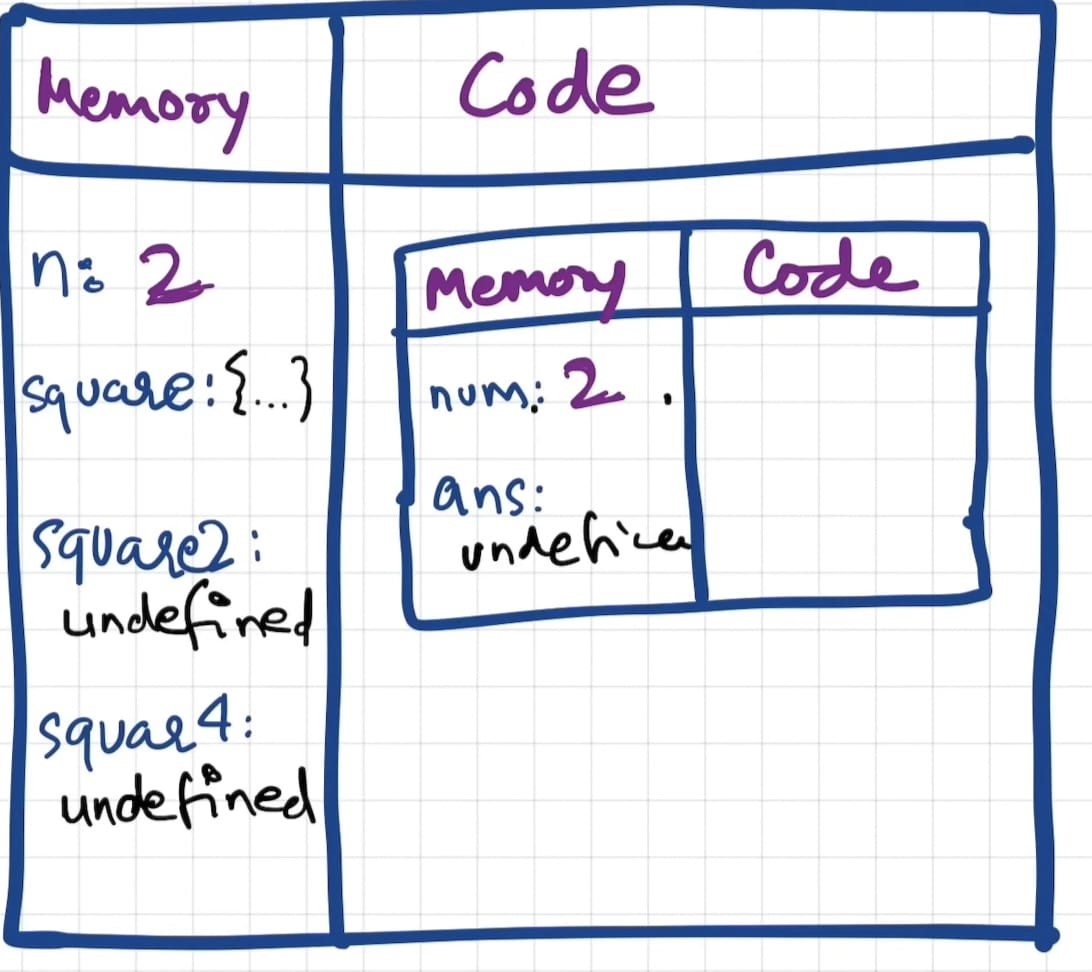 Memory
Code
n: 2
square: {...}
square2:
undefined
squar4:
undefined
Memory
Code
num: 2 .
ans:
undefined